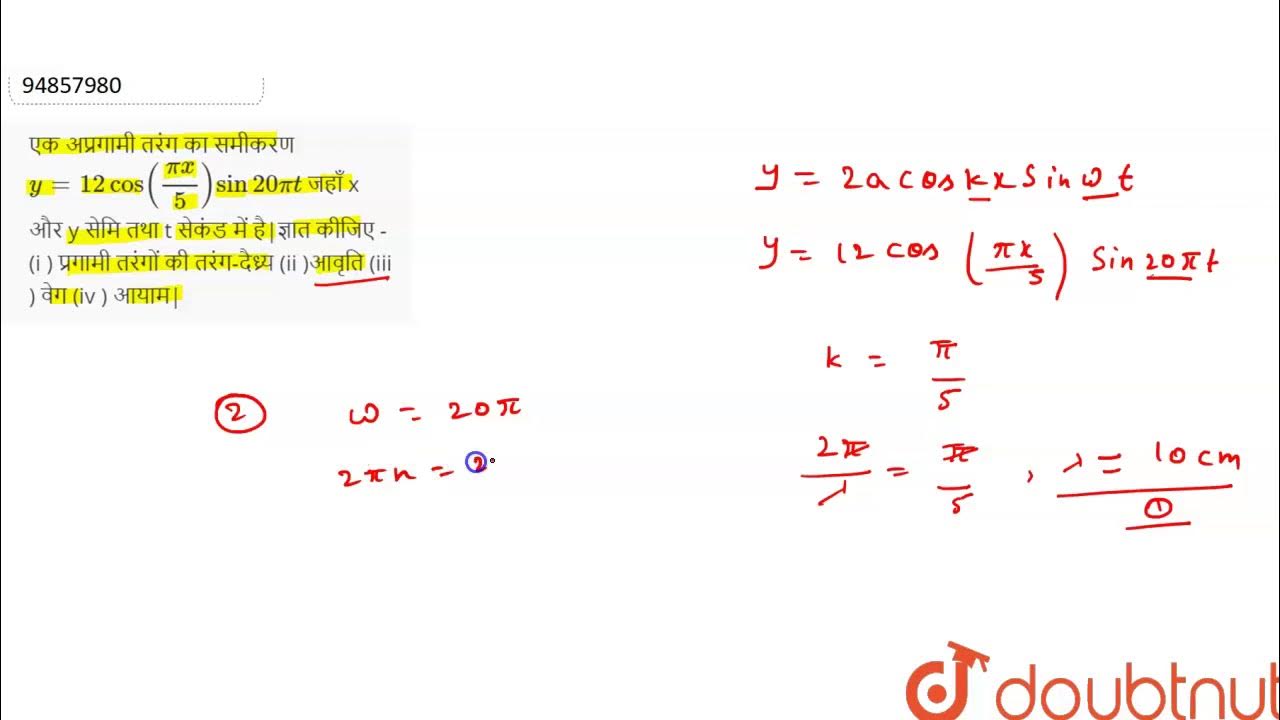 94857980
एक अप्रगामी तरंग का समीकरण
y = 12 cos(πx/5) sin 20πt जहाँ x
और y सेमि तथा t सेकंड में है| ज्ञात कीजिए -
(i ) प्रगामी तरंगों की तरंग-दैर्ध्य (ii )आवृति (iii
) वेग (iv ) आयाम|
y = 2a cos kx sin ω t
y = 12 cos (πx/5) sin 20πt
k = π/5
2π/λ = π/5 , λ = 10 cm
①
② ω = 20π
2πn = 2
doubtnut